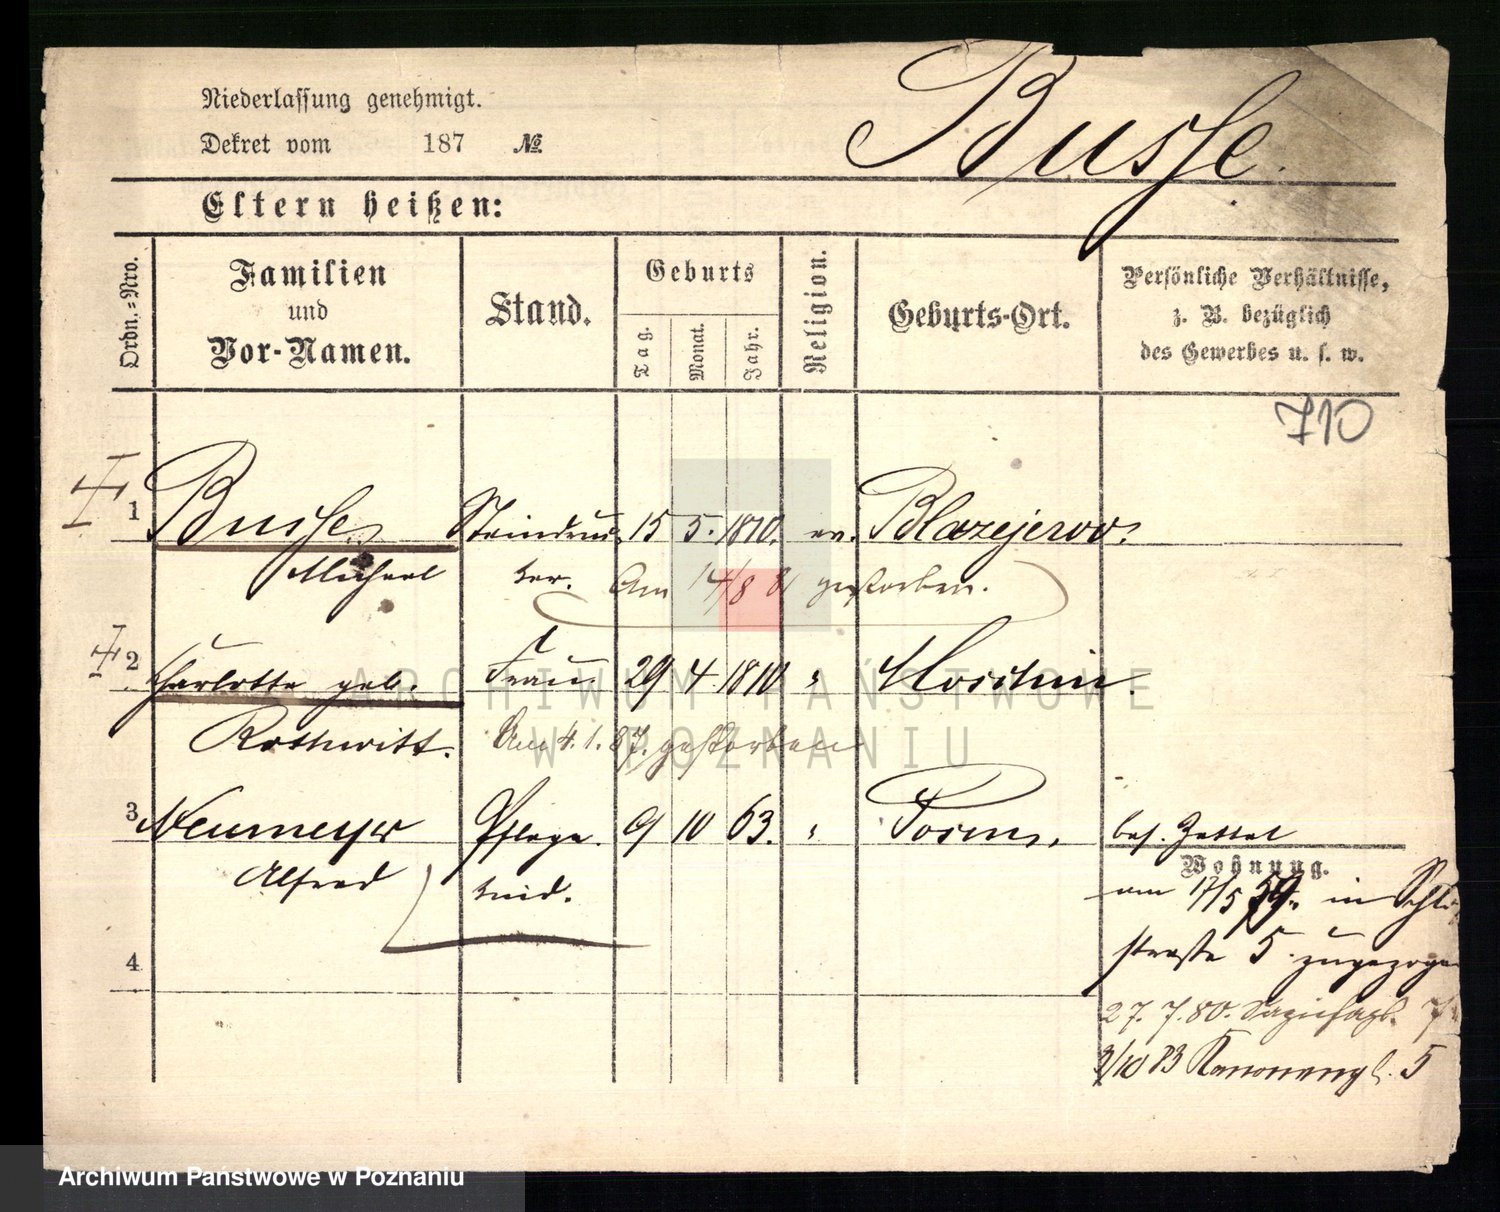 Niederlassung genehmigt.
Dekret vom 187 №
Busse.
Eltern heißen:
Ordn.-Nro.
Familien und Vor-Namen.
Stand.
Geburts
Tag.
Monat.
Jahr.
Religion.
Geburts-Ort.
Persönliche Verhältnisse,
z. B. bezüglich
des Gewerbes u. s. w.
710
1 Busse, Steindruc- 15 5. 1810. ev. Blazejewo.
Michael ker. Am 14/8 81 gestorben.
2 Charlotte geb. Frau 29 4 1810 "
Rothwitt. Am 4.1.87. gestorben
3 Neumeyer Pflege- 9 10 63. " Posen. bes. Zettel
Alfred kind.
Wohnung.
am 17/5 79. in
straße 5 zugezogen
4
27. 7. 80.
3/10 83 Kanonenpl. 5
ARCHIWUM PAŃSTWOWE
W POZNANIU
Archiwum Państwowe w Poznaniu